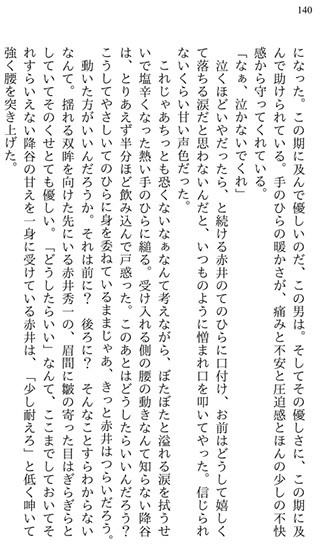 140
になった。この期に及んで優しいのだ、この男は。そしてその優しさに、この期に及
んで助けられている。手のひらの暖かさが、痛みと不安と圧迫感とほんの少しの不快
感から守ってくれている。
「なぁ、泣かないでくれ」
　泣くほどいやだったら、と続ける赤井のてのひらに口付け、お前はどうして嬉しく
て落ちる涙だと思わないんだと、いつものように憎まれ口を叩いてやった。信じられ
ないくらい甘い声色だった。
　これじゃあちっとも恐くないなぁなんて考えながら、ぼたぼたと溢れる涙を拭うせ
いで塩辛くなった熱い手のひらに縋る。受け入れる側の腰の動きなんて知らない降谷
は、とりあえず半分ほど飲み込んで戸惑った。このあとはどうしたらいいんだろう？
こうしてやさしいてのひらに身を委ねているままじゃあ、きっと赤井はつらいだろう。
　動いた方がいいんだろうか。それは前に？　後ろに？　そんなことすらわからない
なんて。揺れる双眸を向けた先にいる赤井秀一の、眉間に皺の寄った目はぎらぎらと
していてそのくせとても優しい。「どうしたらいい」なんて、ここまでしておいてそ
れすらいえない降谷の甘えを一身に受けている赤井は、「少し耐えろ」と低く呻いて
強く腰を突き上げた。